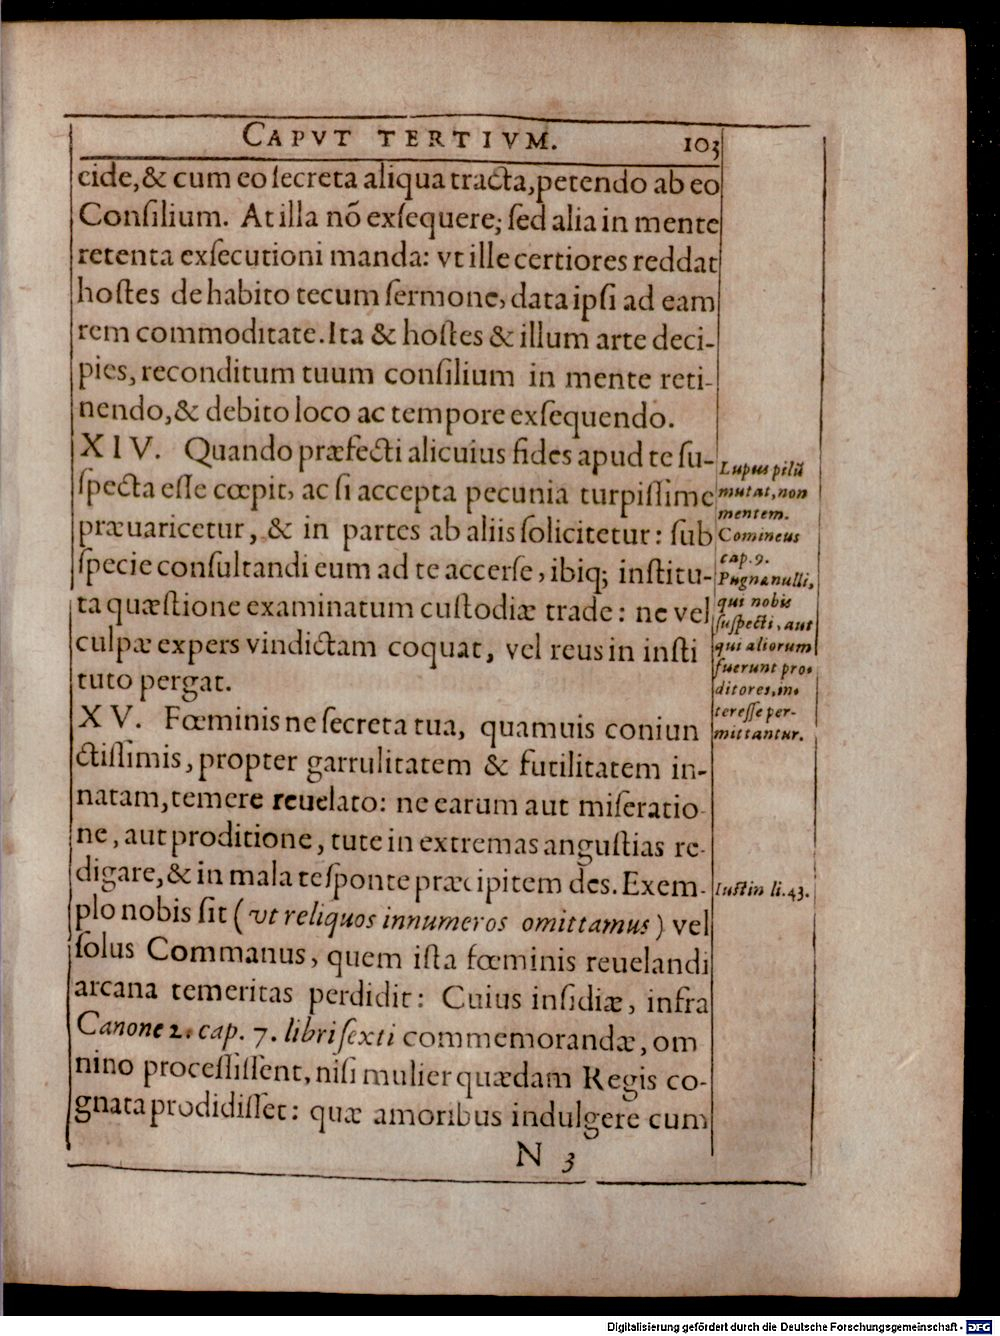 CAPVT TERTIVM. 103
cide, & cum eo ſecreta aliqua tracta, petendo ab eo
Conſilium. At illa nõ exſequere; ſed alia in mente
retenta exſecutioni manda: vt ille certiores reddat
hoſtes de habito tecum ſermone, data ipſi ad eam
rem commoditate. Ita & hoſtes & illum arte deci-
pies, reconditum tuum conſilium in mente reti-
nendo, & debito loco ac tempore exſequendo.
XIV. Quando præfecti alicuius fides apud te ſu-
ſpecta eſſe cœpit, ac ſi accepta pecunia turpiſſime
præuaricetur, & in partes ab aliis ſolicitetur: ſub
ſpecie conſultandi eum ad te accerſe, ibiq; inſtitu-
ta quæſtione examinatum cuſtodiæ trade: ne vel
culpæ expers vindictam coquat, vel reus in inſti
tuto pergat.
XV. Fœminis ne ſecreta tua, quamuis coniun
ctiſſimis, propter garrulitatem & futilitatem in-
natam, temere reuelato: ne earum aut miſeratio-
ne, aut proditione, tute in extremas anguſtias re-
digare, & in mala teſponte præcipitem des. Exem-
plo nobis ſit (vt reliquos innumeros omittamus) vel
ſolus Commanus, quem iſta fœminis reuelandi
arcana temeritas perdidit: Cuius inſidiæ, infra
Canone 2. cap. 7. libri ſexti commemorandæ, om
nino proceſſiſſent, niſi mulier quædam Regis co-
gnata prodidiſſet: quæ amoribus indulgere cum
N 3
Lupus pilũ
mutat, non
mentem.
Comineus
cap. 9.
Pugna nulli,
qui nobis
ſuſpecti, aut
qui aliorum
fuerunt pro-
ditores, in-
tereſſe per-
mittantur.
Iuſtin li. 43.
Digitalisierung gefördert durch die Deutsche Forschungsgemeinschaft - DFG